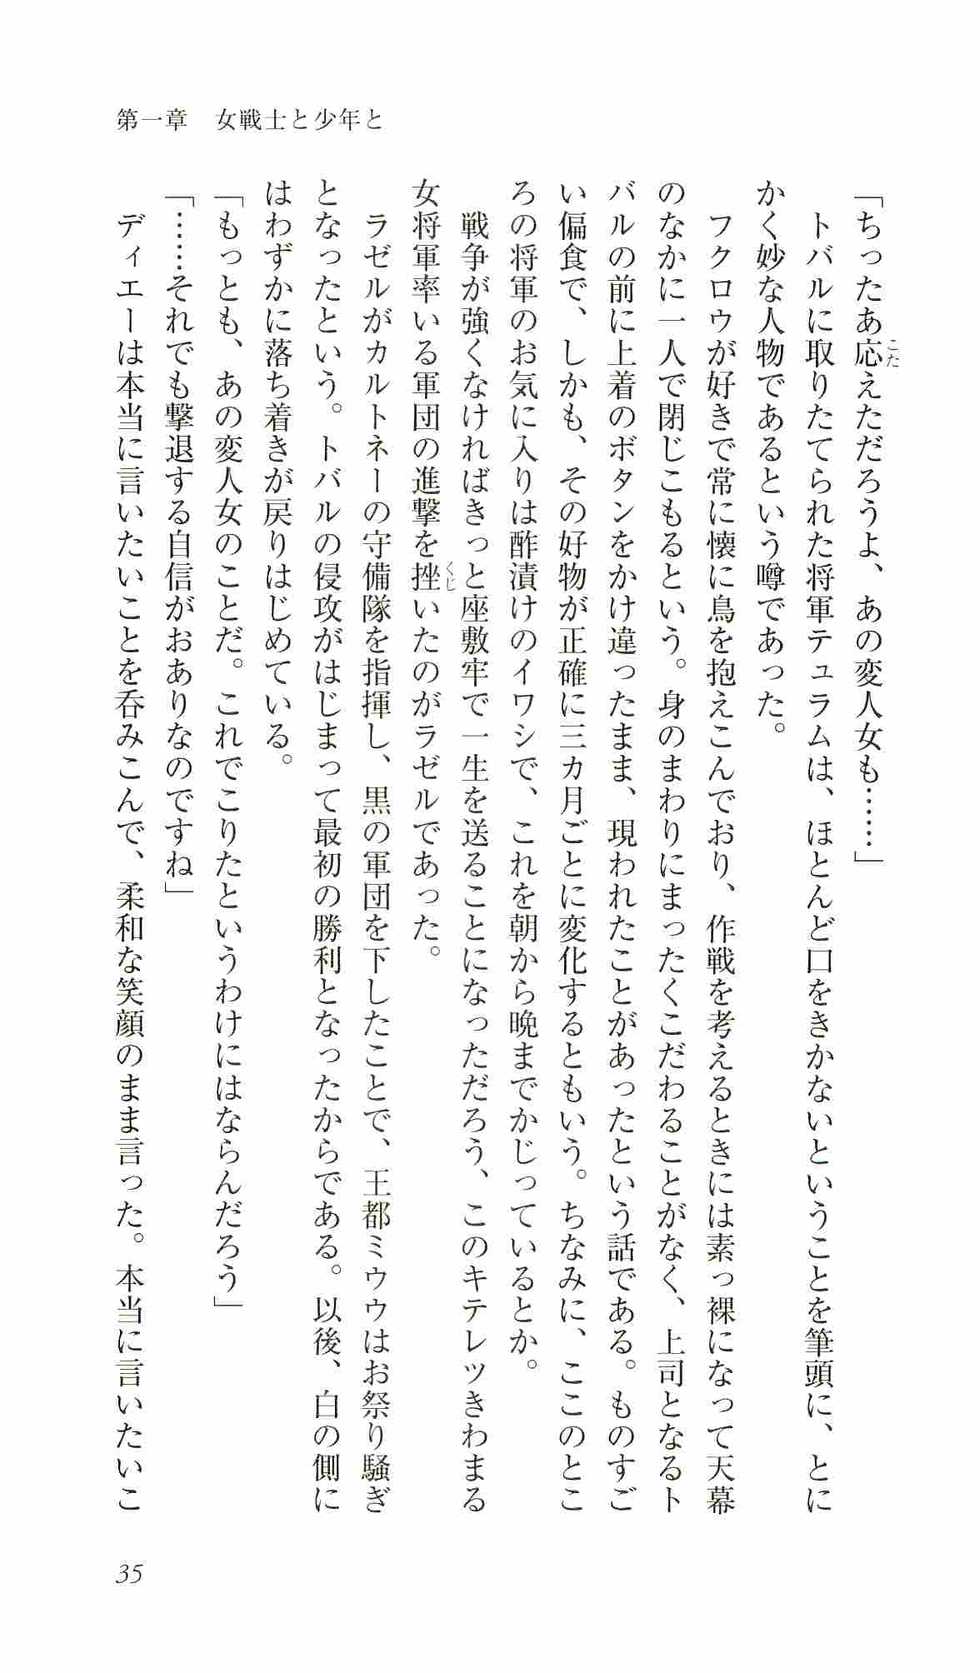 第一章　女戦士と少年と
「ちったあ応えただろうよ、あの変人女も……」
トバルに取りたてられた将軍テュラムは、ほとんど口をきかないということを筆頭に、とに
かく妙な人物であるという噂であった。
フクロウが好きで常に懐に鳥を抱えこんでおり、作戦を考えるときには素っ裸になって天幕
のなかに一人で閉じこもるという。身のまわりにまったくこだわることがなく、上司となるト
バルの前に上着のボタンをかけ違ったまま、現われたことがあったという話である。ものすご
い偏食で、しかも、その好物が正確に三カ月ごとに変化するともいう。ちなみに、ここのとこ
ろの将軍のお気に入りは酢漬けのイワシで、これを朝から晩までかじっているとか。
戦争が強くなければきっと座敷牢で一生を送ることになっただろう、このキテレツきわまる
女将軍率いる軍団の進撃を挫いたのがラゼルであった。
ラゼルがカルトネーの守備隊を指揮し、黒の軍団を下したことで、王都ミウゥはお祭り騒ぎ
となったという。トバルの侵攻がはじまって最初の勝利となったからである。以後、白の側に
はわずかに落ち着きが戻りはじめている。
「もっとも、あの変人女のことだ。これでこりたというわけにはならんだろう」
「……それでも撃退する自信がおありなのですね」
ディエーは本当に言いたいことを呑みこんで、柔和な笑顔のまま言った。本当に言いたいこ
35